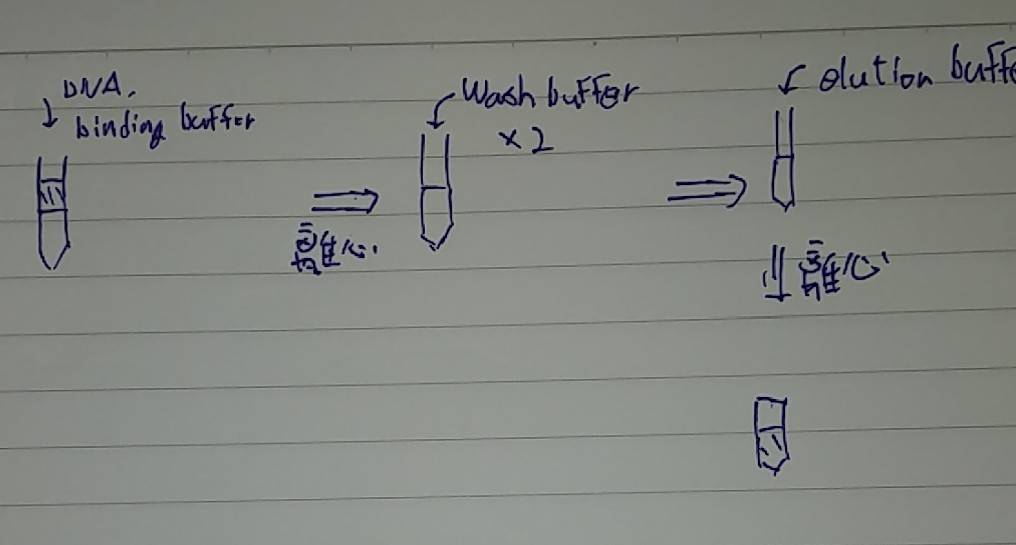 DNA,
binding buffer
離心
Wash buffer
x2
elution buffe
離心